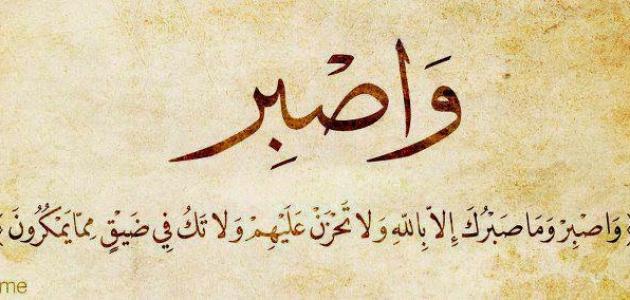 وَاصْبِر
﴿ وَاصْبِرْ وَمَا صَبْرُكَ إِلاَّ بِاللّهِ وَلاَ تَحْزَنْ عَلَيْهِمْ وَلاَ تَكُ فِي ضَيْقٍ مِمَّا يَمْكُرُونَ ﴾
me